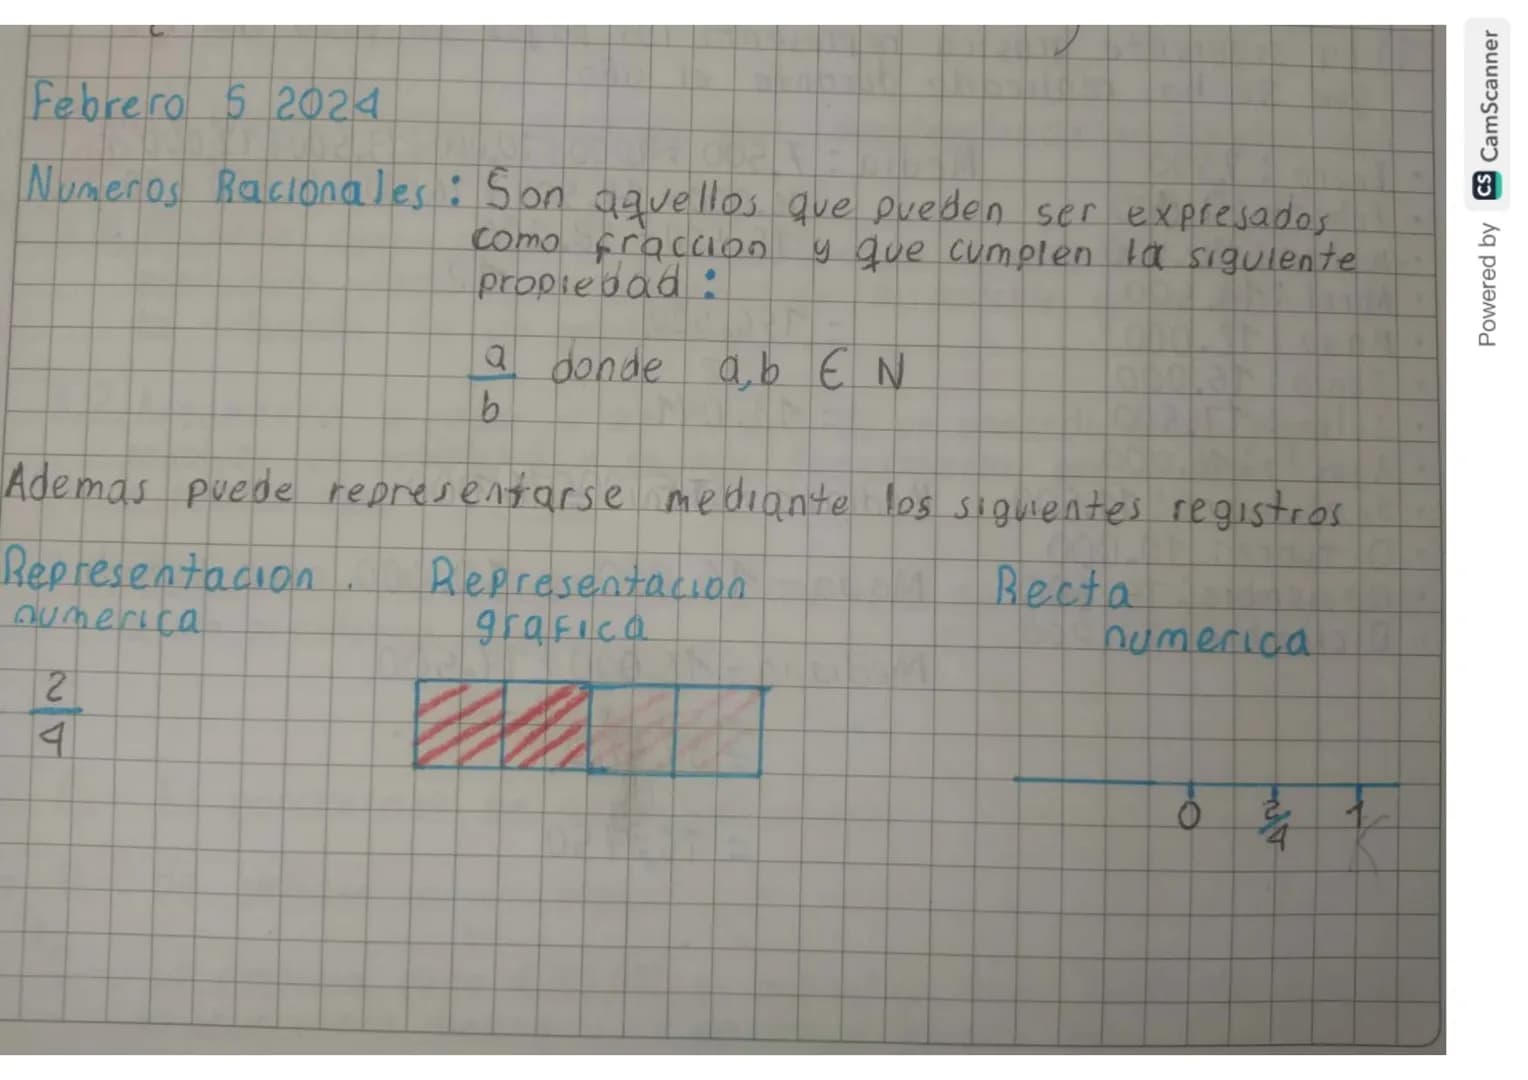 Febrero 5 2024
Numeros Racionales : Son aquellos que pueden ser expresados
como fraccion y que cumplen la siguiente
propiedad :
a/b donde a,b ∈ N
Ademas puede representarse mediante los siguientes registros
Representacion . Representacion Recta
numerica grafica numerica
2/4
0 2/4 1
Powered by CS CamScanner